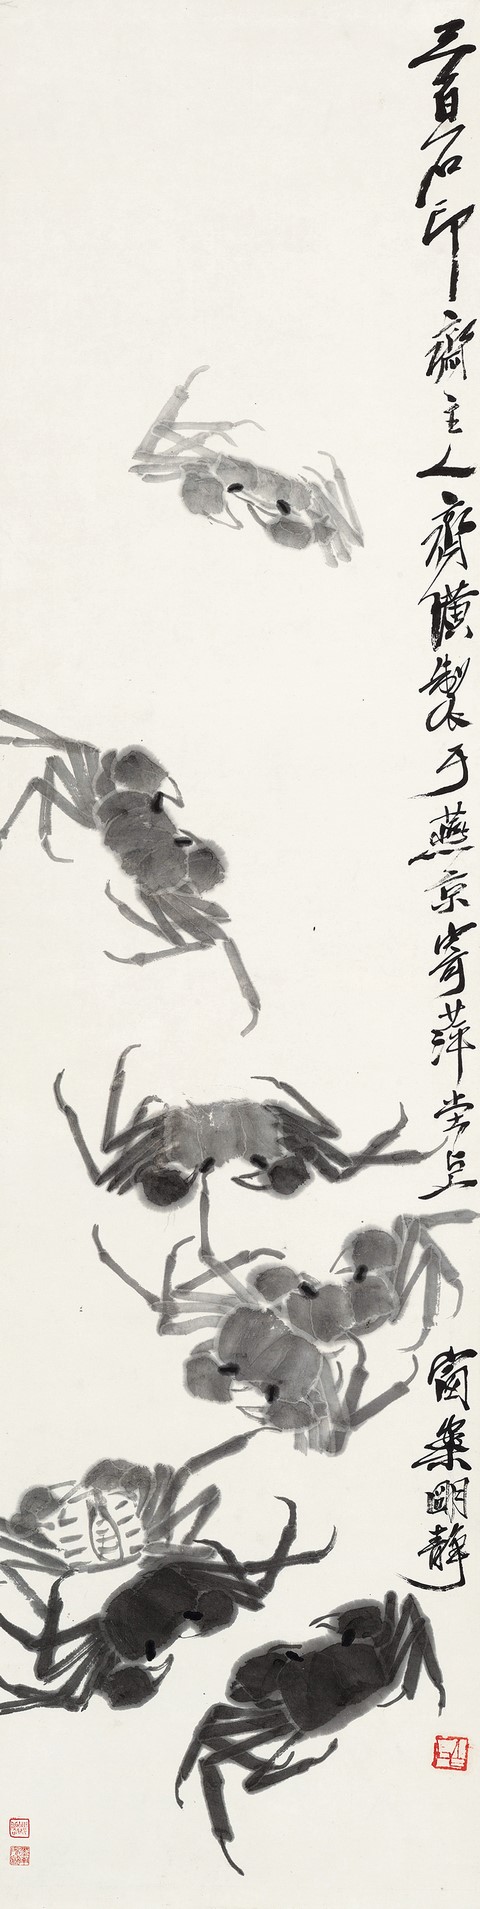 三百石印齋主人齊璜製于燕京寄萍堂上
窗案明靜